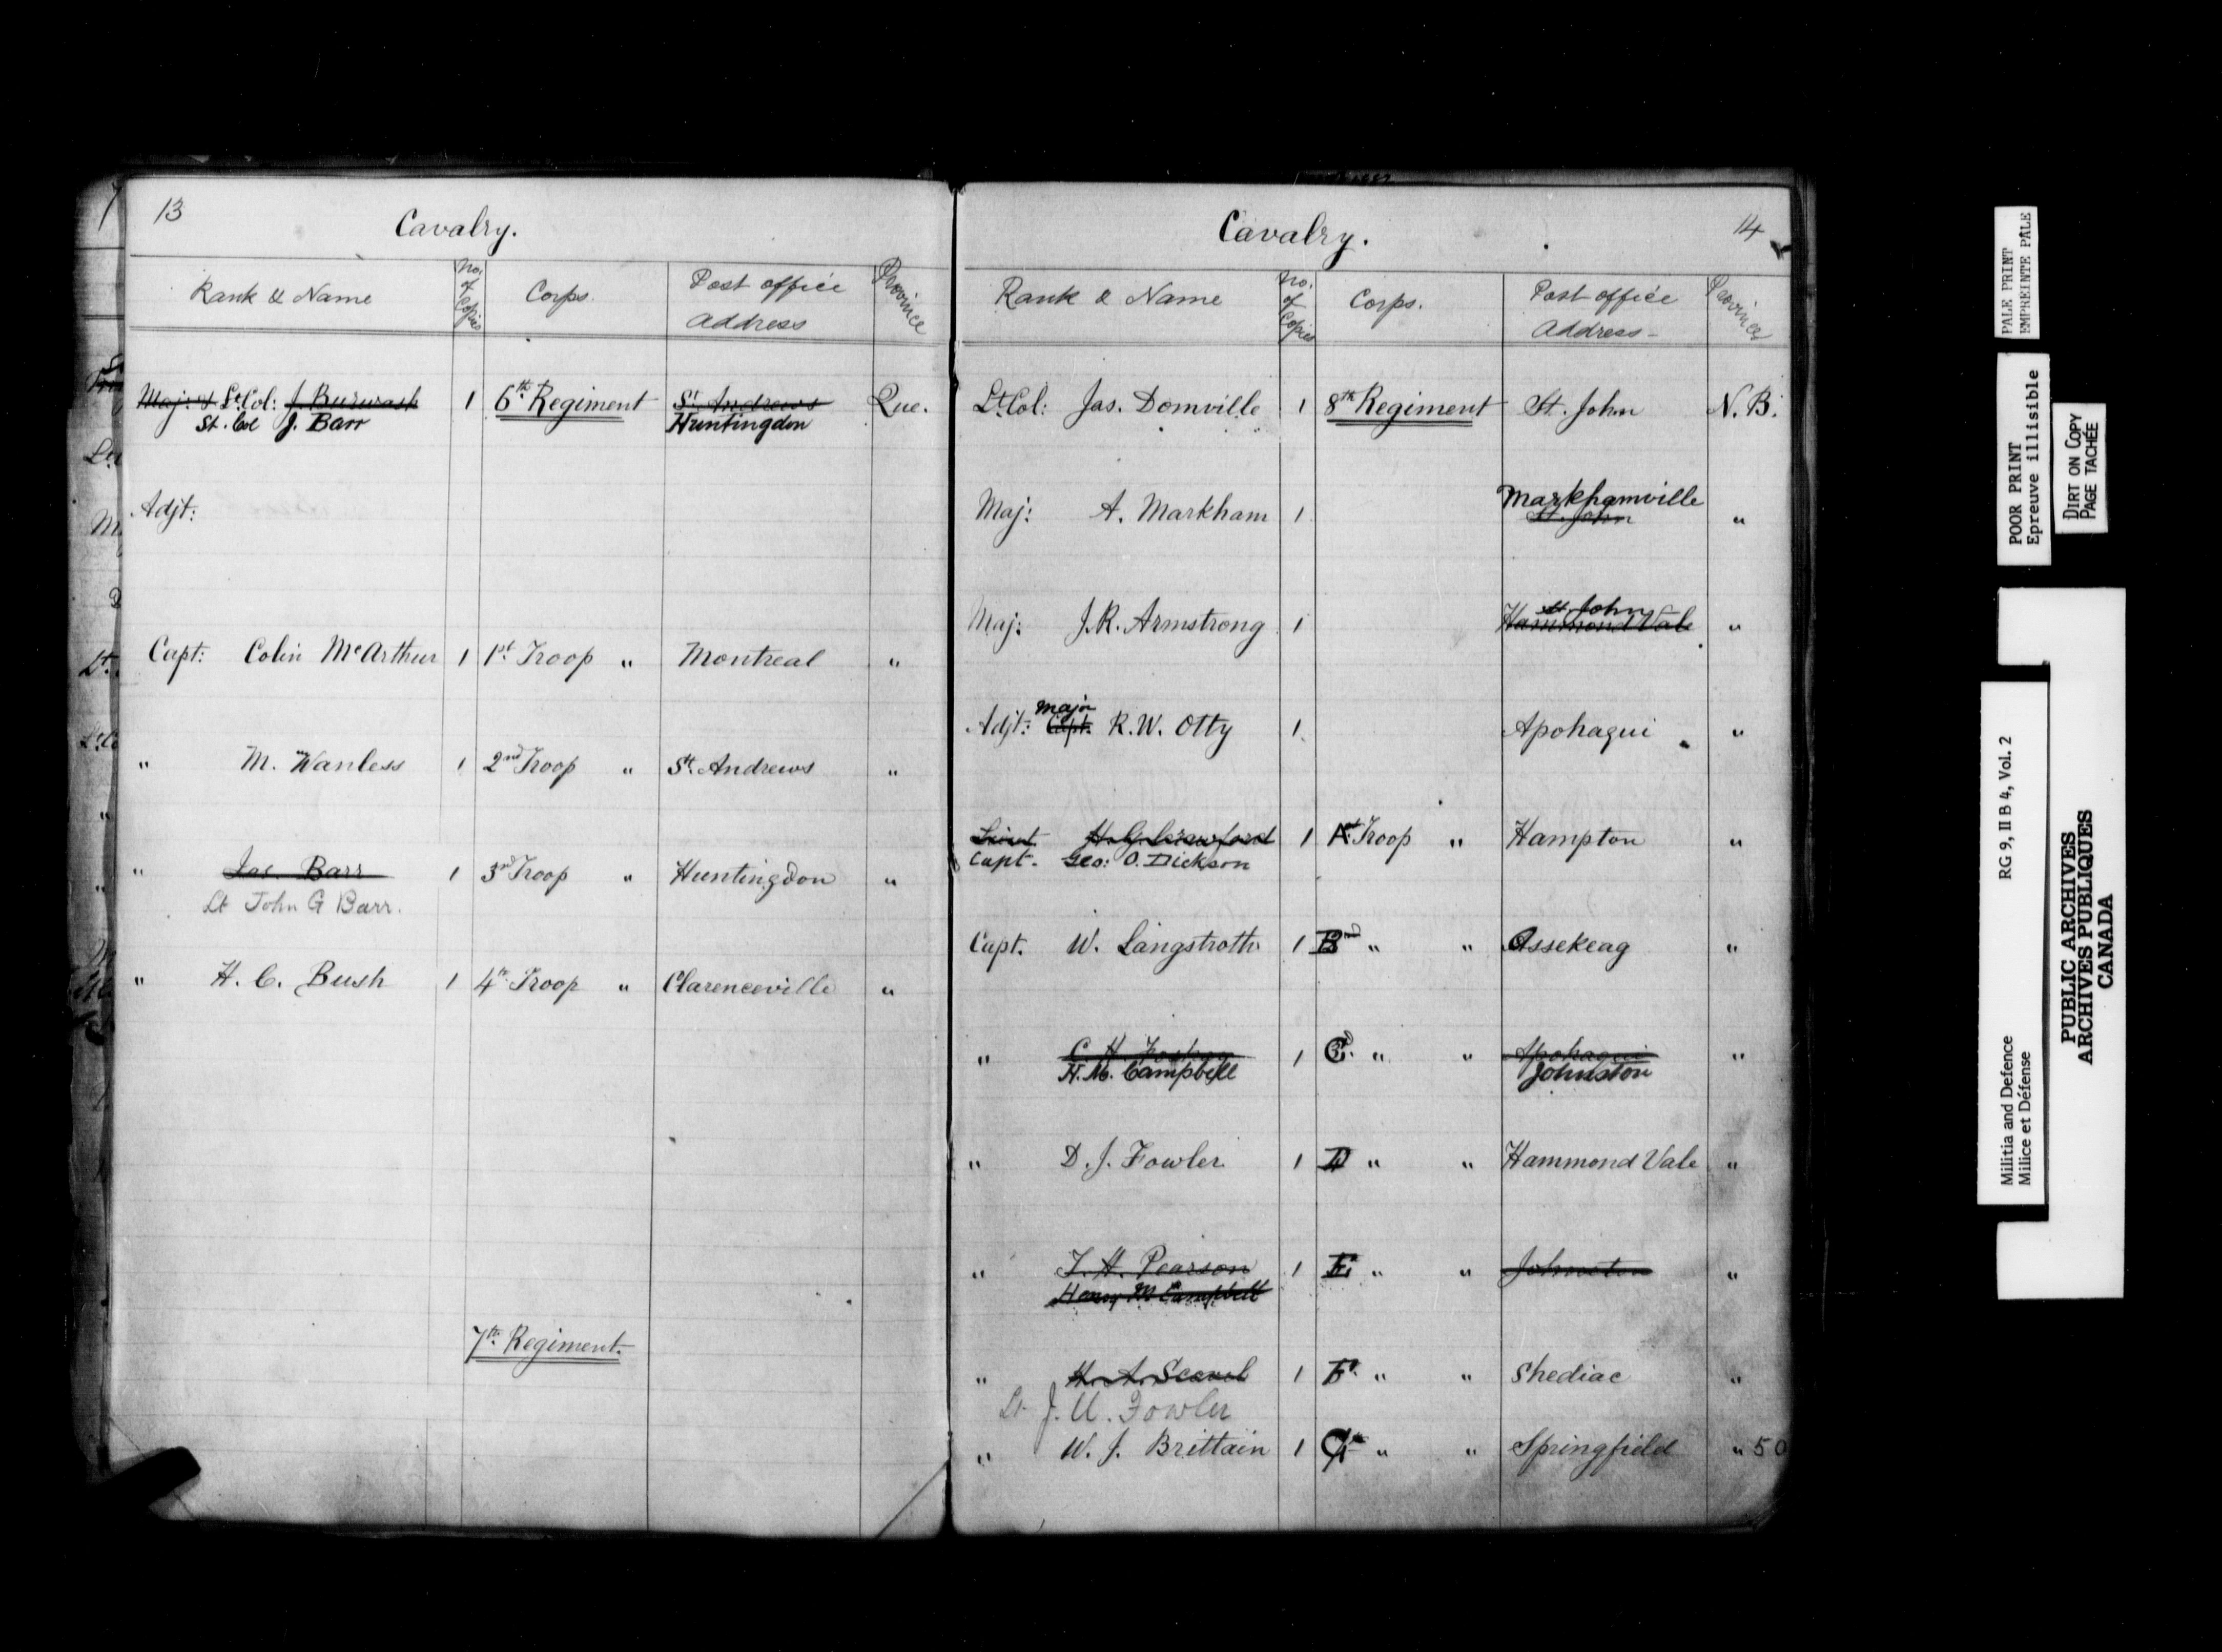 13
Cavalry.
Rank & Name No. of Copies Corps. Post office Address Province
Maj: & Lt. Col: J. Burwash 1 6th Regiment St. Andrews Que.
Lt. Col J. Barr Huntingdon
Adjt:
Capt: Colin McArthur 1 1st Troop " Montreal "
" M. Wanless 1 2nd Troop " St. Andrews "
" Jas. Barr 1 3rd Troop " Huntingdon "
Lt John G Barr.
" H. C. Bush 1 4th Troop " Clarenceville "
7th Regiment.
14
Cavalry.
Rank & Name No. of Copies Corps. Post office Address Province
Lt. Col: Jas. Domville 1 8th Regiment St. John N.B.
Markhamville
Maj: A. Markham 1 St. John "
St. John
Maj: J.R. Armstrong 1 Hammond Vale "
Major
Adjt: Capt. R.W. Otty 1 Apohaqui "
Lieut H. G. Crawford 1 A Troop " Hampton "
Capt. Geo: O. Dickson
Capt. W. Langstroth 1 B " " Ossekeag "
" C. H. 1 C " " Apohaqui "
H. M. Campbell Johnston
" D. J. Fowler 1 D " " Hammond Vale "
" T. H. Pearson 1 E " " Johnston "
Henry M Campbell
" H. A. 1 F " " Shediac "
Lt J. U. Fowler
" W. J. Brittain 1 G " " Springfield " 50
PALE PRINT
EMPREINTE PALE
POOR PRINT
Epreuve illisible
DIRT ON COPY
PAGE TACHÉE
Militia and Defence RG 9, II B 4, Vol. 2
Milice et Défense
PUBLIC ARCHIVES
ARCHIVES PUBLIQUES
CANADA